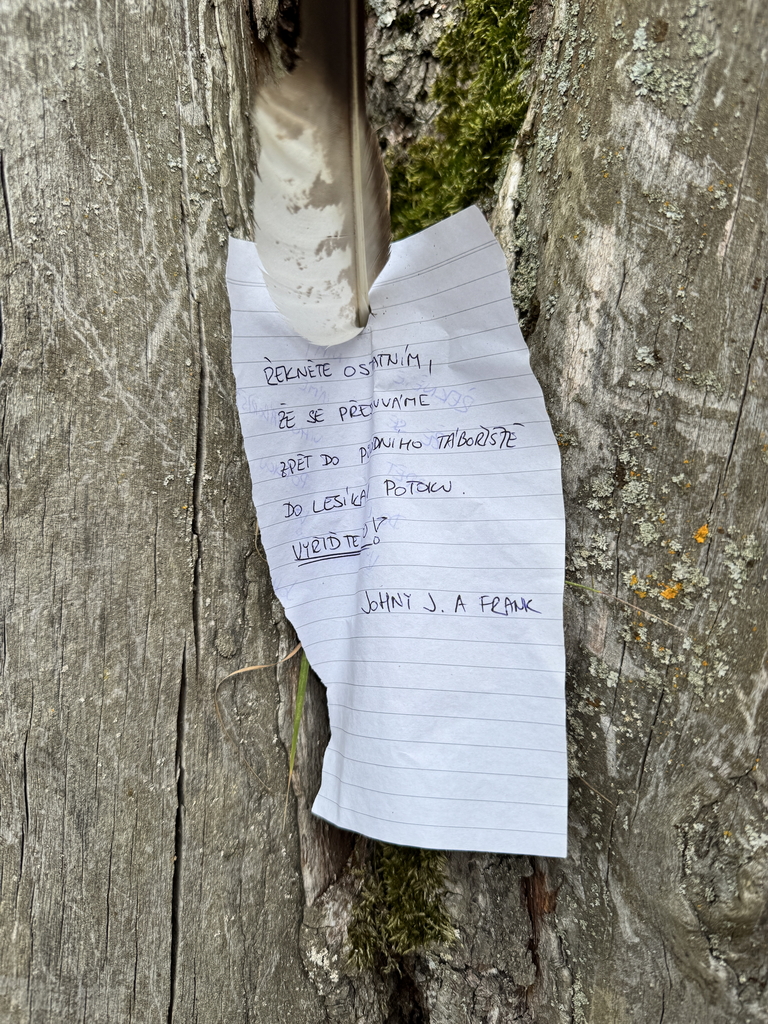 ŘEKNĚTE OSTATNÍM,
ŽE SE PŘESUVÁME
ZPĚT DO PŮVODNÍHO TÁBOŘIŠTĚ
DO LESÍKA POTOKU.
VYŘIĎTE!
JOHNY J. A FRANK